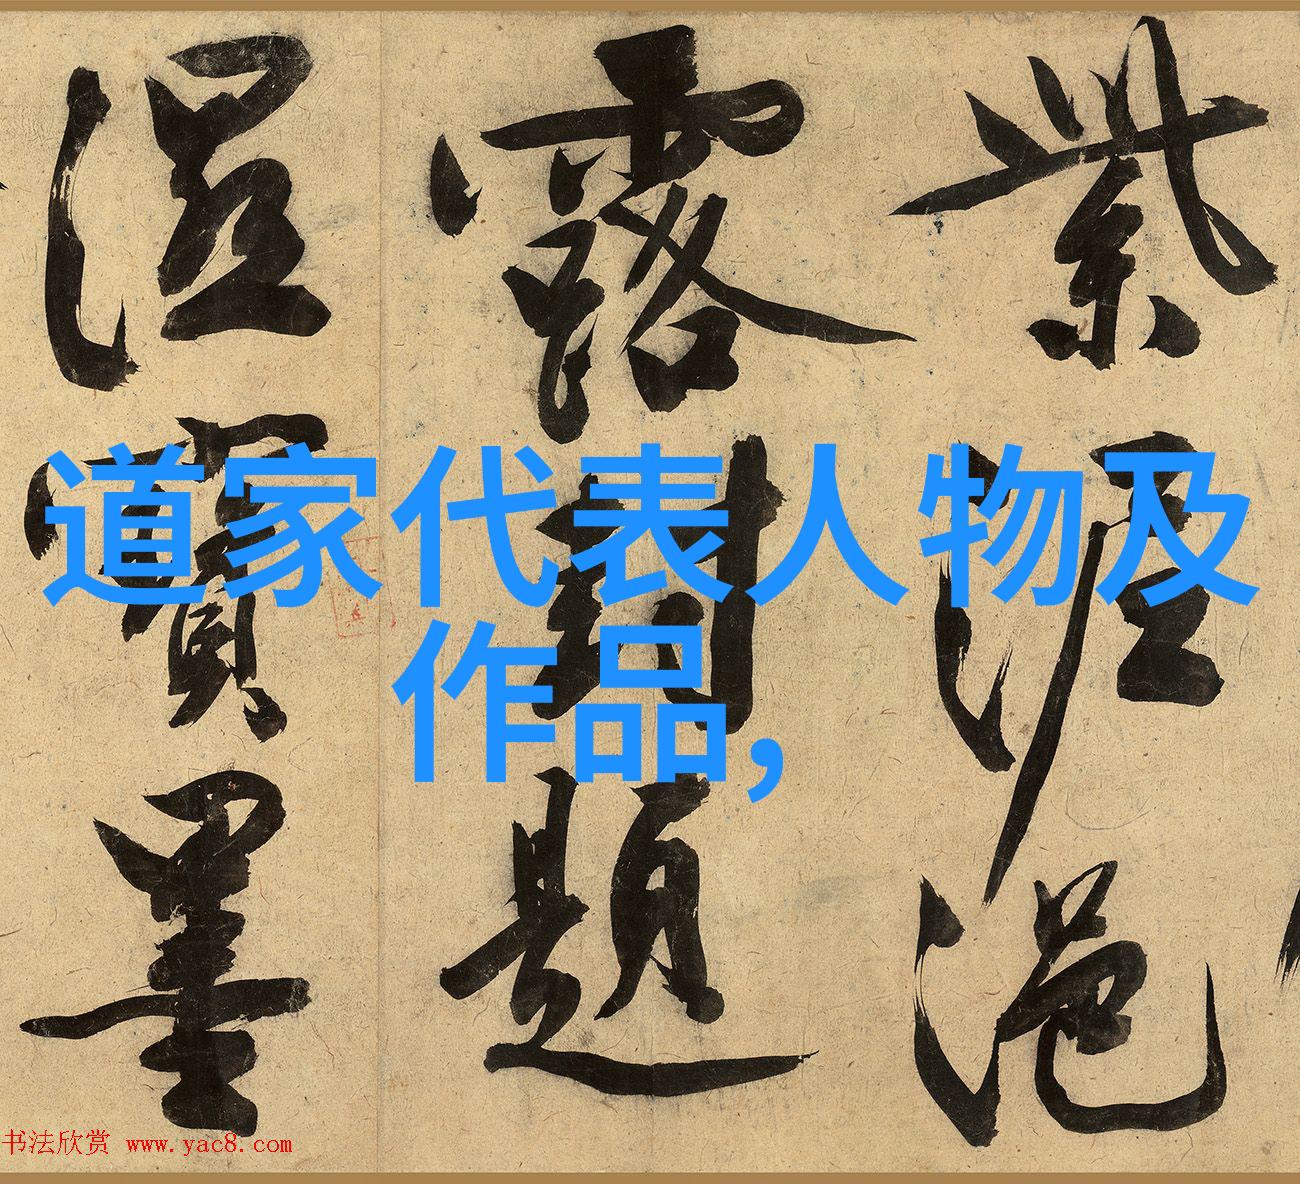 紫泥浥
露封題
溼寶墨
道家代表人物及
作品,
书法欣赏 www.yac8.com